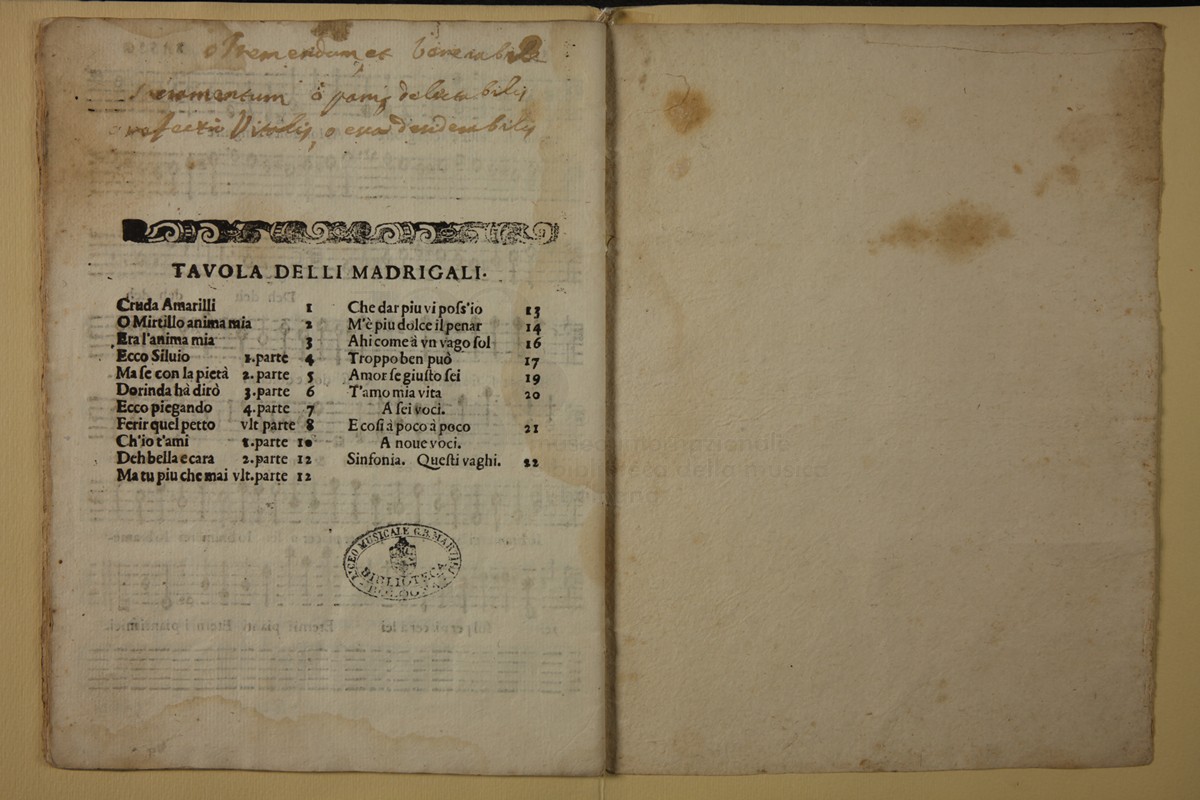 o Tremendum et Venerabile
Sacramentum o panis delectabilis
o refectio Vitalis, o esca desiderabilis
TAVOLA DELLI MADRIGALI.
Cruda Amarilli 1
O Mirtillo anima mia 2
Era l'anima mia 3
Ecco Siluio 1.parte 4
Ma ſe con la pietà 2.parte 5
Dorinda hà dirò 3.parte 6
Ecco piegando 4.parte 7
Ferir quel petto vlt parte 8
Ch'io t'ami 1.parte 10
Deh bella e cara 2.parte 12
Ma tu piu che mai vlt.parte 12
Che dar piu vi poſs'io 13
M'è piu dolce il penar 14
Ahi come à vn vago ſol 16
Troppo ben può 17
Amor ſe giuſto ſei 19
T'amo mia vita 20
A ſei voci.
E coſi à poco à poco 21
A noue voci.
Sinfonia. Queſti vaghi. 22
LICEO MUSICALE G.B. MARTINI
BIBLIOTECA
BOLOGNA